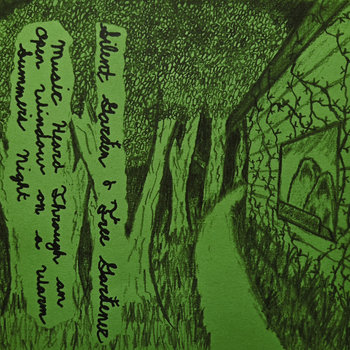 Silent Garden &
Music Heard Through an
Open Window on a Warm
Summers Night